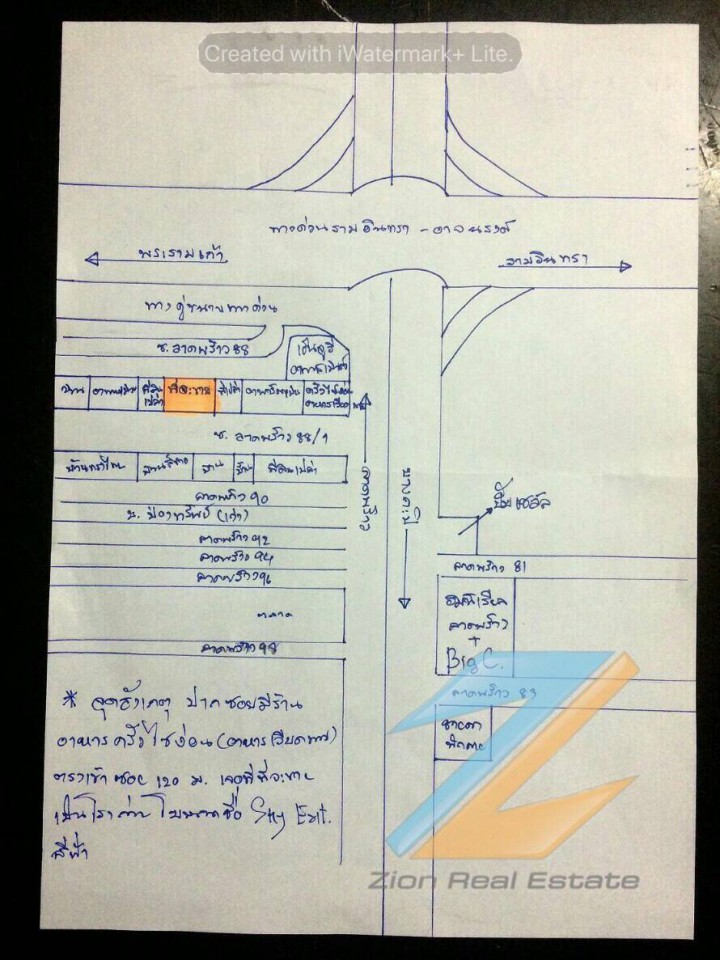 Created with iWatermark+ Lite.
ทางด่วนรามอินทรา - อาจณรงค์
พระรามเก้า
รามอินทรา
ทางคู่ขนานทางด่วน
ซ. ลาดพร้าว 88
เซ็นจูรี่
อพาร์ทเม้นท์
บ้าน
ที่ดิน
เปล่า
ที่จะขาย
ครัวไซ่ง่อน
ซ. ลาดพร้าว 88/1
บ้านทรงไทย
บ้าน
ที่ดินเปล่า
ลาดพร้าว
บางกะปิ
ลาดพร้าว 90
ลาดพร้าว 92
ลาดพร้าว 94
ลาดพร้าว 96
ตลาด
ลาดพร้าว 98
ปั๊มเชลล์
ลาดพร้าว 81
อิมพีเรียล
ลาดพร้าว
+
Big C.
ลาดพร้าว 83
* จุดสังเกตุ ปากซอยมีร้าน
อาหารครัวไซ่ง่อน (อาหารเวียดนาม)
ตรงเข้าซอย 120 ม. เจอที่ที่จะขาย
เป็นโรงถ่ายโฆษณาชื่อ Sky Exit.
สีฟ้า
Zion Real Estate